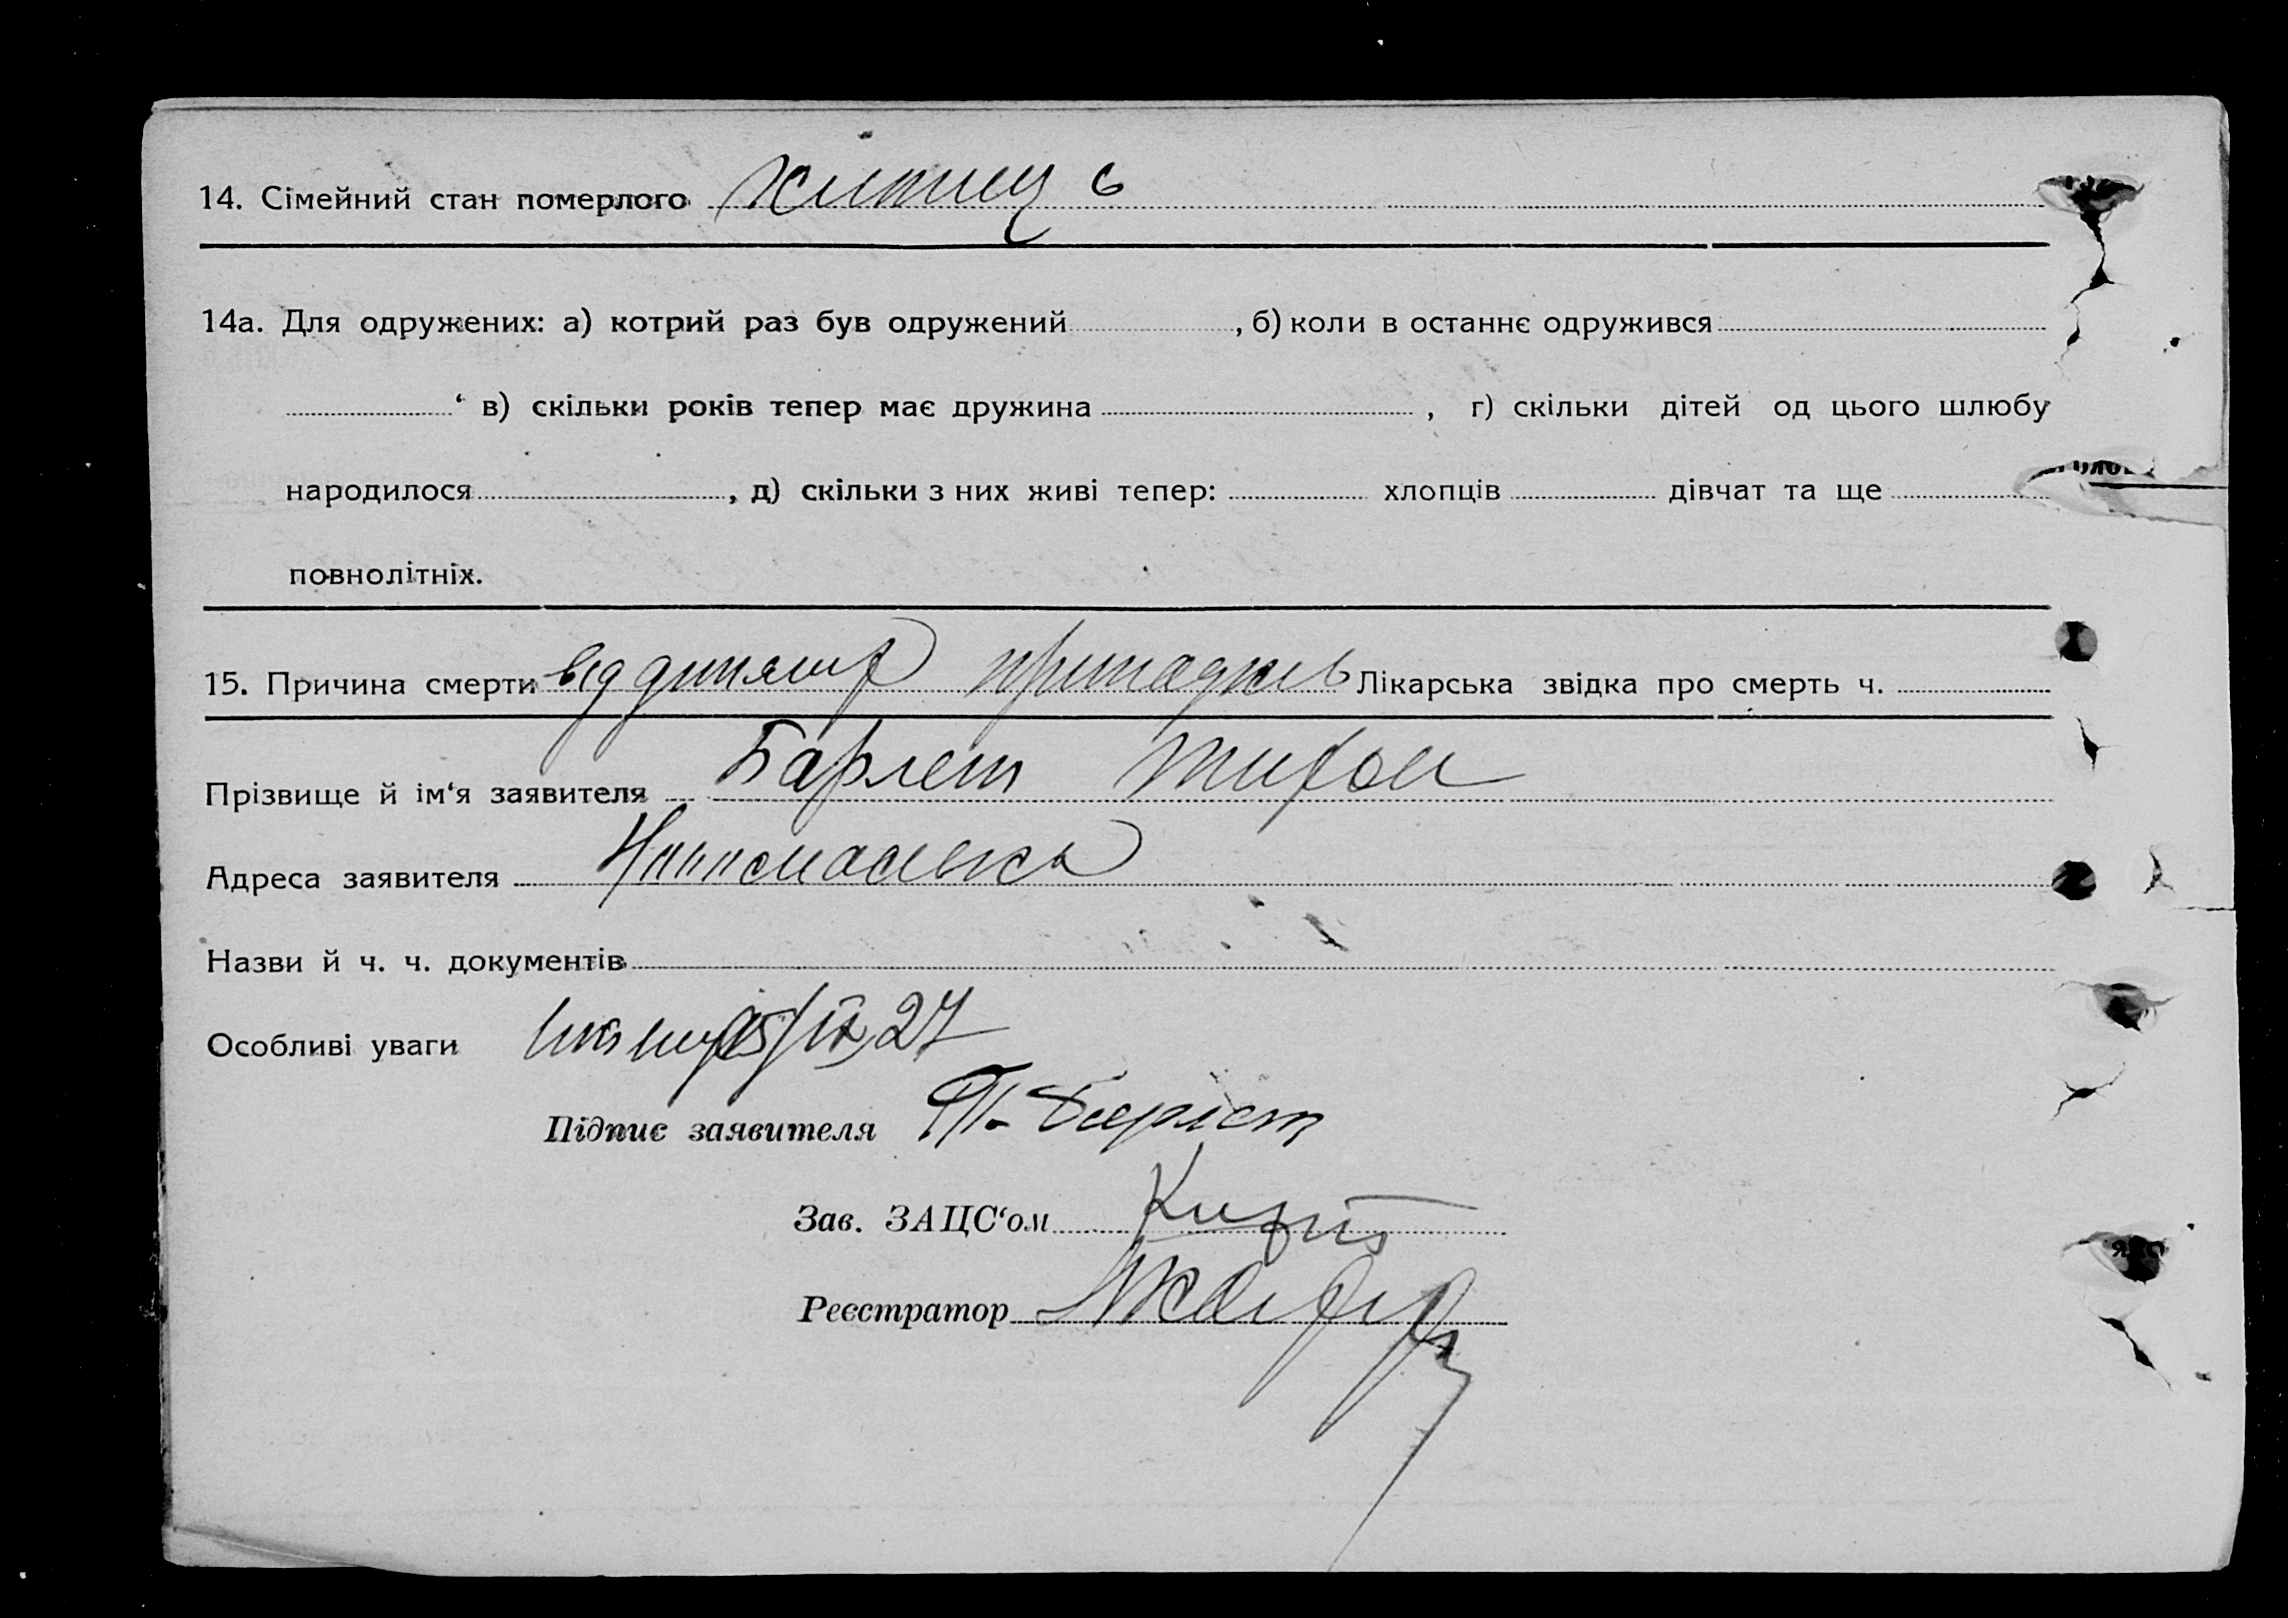 14. Сімейний стан померлого
14а. Для одружених: а) котрий раз був одружений , б) коли в останнє одружився
‘ в) скільки років тепер має дружина , г) скільки дітей од цього шлюбу
народилося , д) скільки з них живі тепер: хлопців дівчат та ще
повнолітніх.
15. Причина смерти від Лікарська звідка про смерть ч.
Прізвище й ім‘я заявителя Барлет Тихон
Адреса заявителя
Назви й ч. ч. документів
Особливі уваги 27
Підпис заявителя Т. Барлет
Зав. ЗАЦС‘ом
Реєстратор